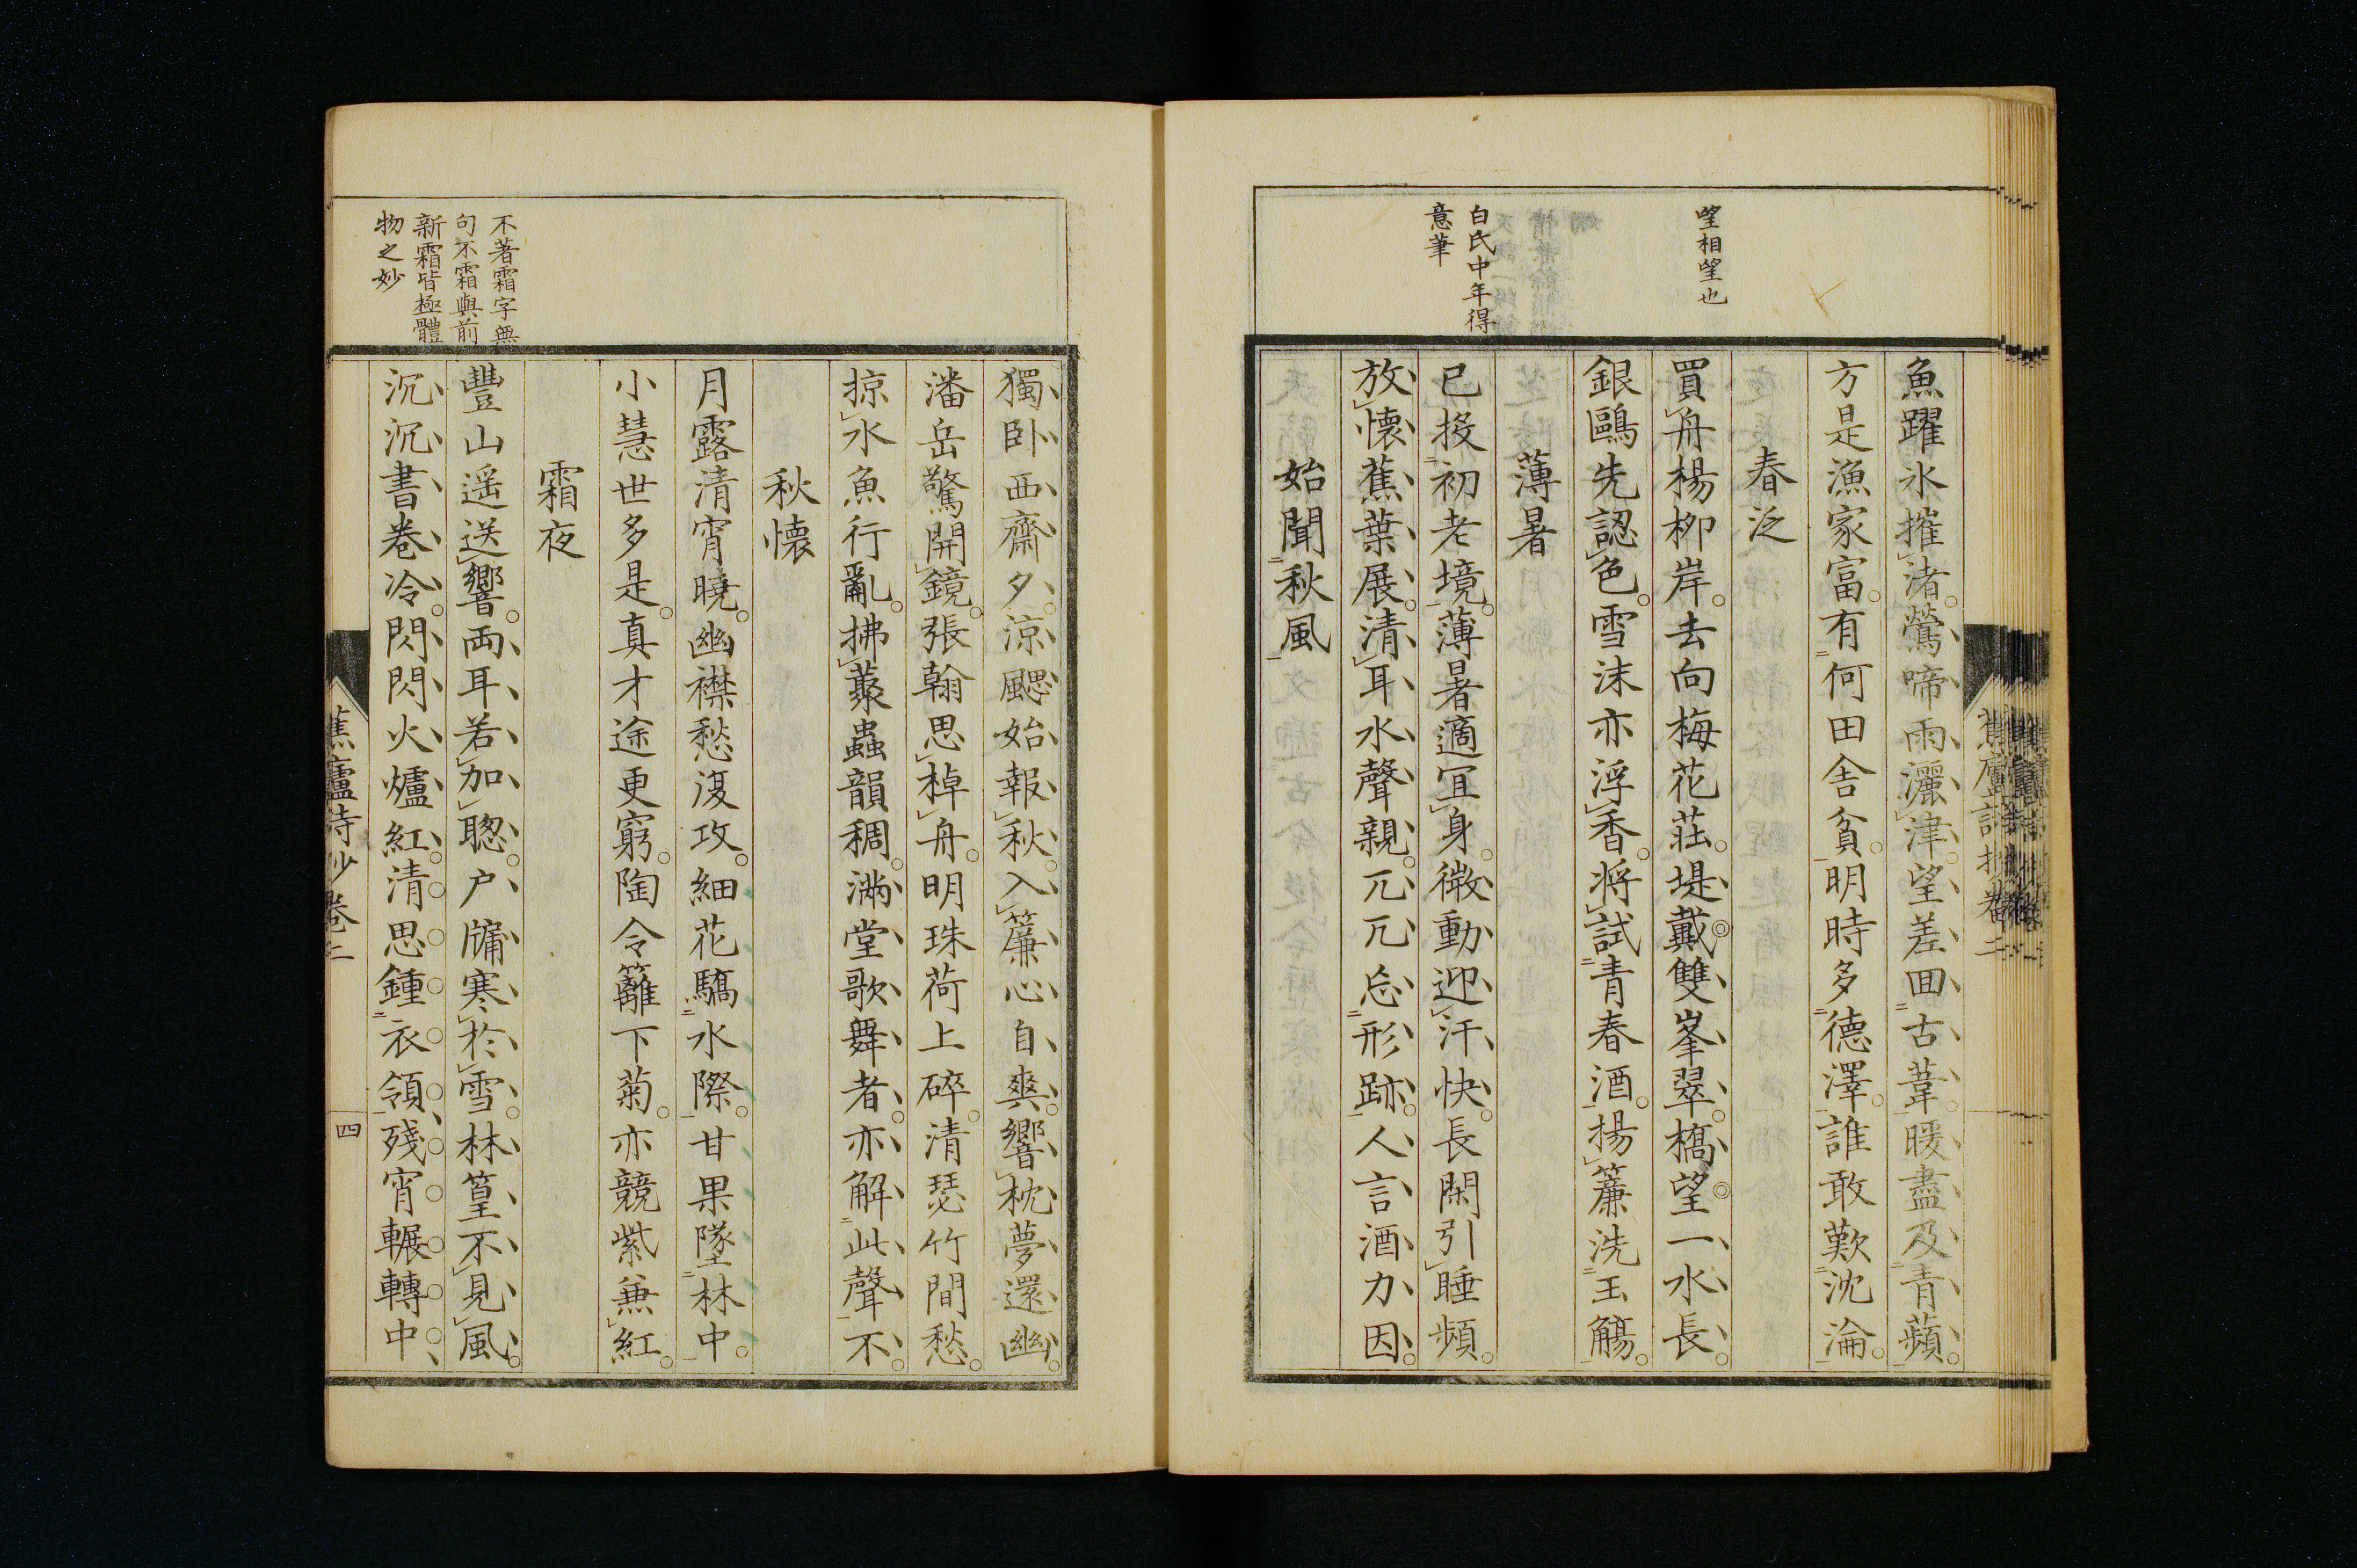 望相望也
白氏中年得
意筆
魚躍氷摧渚。鶯啼雨灑津。望差囬古葦。暖盡及青蘋。
方是漁家富。有何田舍貧。明時多德澤。誰敢歎沈淪。
春泛
買舟楊柳岸。去向梅花莊。堤戴雙峯翠。橋望一水長。
銀鷗先認色。雪沫亦浮香。將試青春酒。揚簾洗玉觴。
薄暑
已投初老境。薄暑適冝身。微動迎汗快。長閑引睡頻。
放懷蕉葉展。清耳水聲親。兀兀忘形跡。人言酒力因。
始聞秋風
蕉廬詩抄卷二
不著霜字無
句不霜與前
新霜皆極體
物之妙
獨卧西齋夕。涼颸始報秋。入簾心自爽。響枕夢還幽。
潘岳驚開鏡。張翰思棹舟。明珠荷上碎。清瑟竹間愁。
掠水魚行亂。拂叢蟲韻稠。滿堂歌舞者。亦解此聲不。
秋懷
月露清宵曉。幽襟愁復攻。細花驕水際。甘果墜林中。
小慧世多是。真才途更窮。陶令籬下菊。亦競紫兼紅。
霜夜
豐山遥送響。両耳若加聰。户牖寒於雪。林篁不見風。
沉沉書卷冷。閃閃火爐紅。清思鍾衣領。殘宵輾轉中
蕉廬詩抄卷二
四